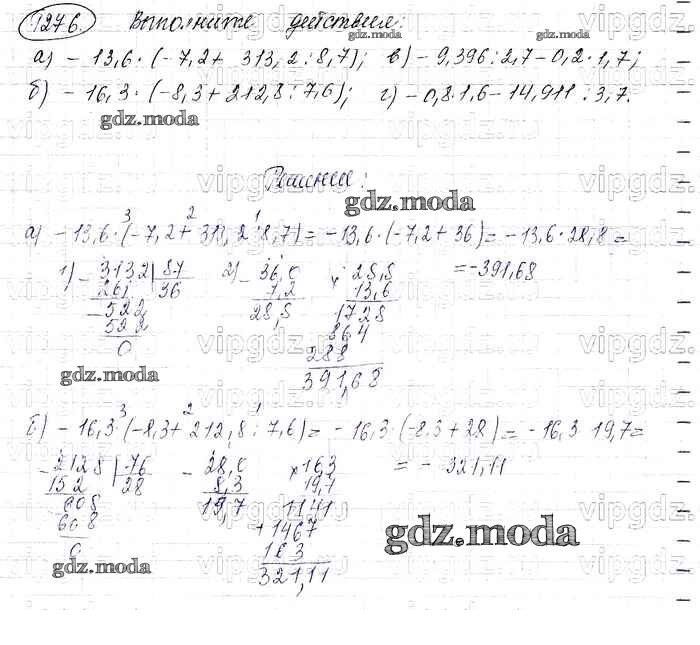 1276. Выполните действия:
а) - 13,6 · (- 7,2 + 313,2 : 8,7); в) - 9,396 : 2,7 - 0,2 · 1,7;
б) - 16,3 · (-8,3 + 212,8 : 7,6); г) - 0,8·1,6 - 14,911 : 3,7.
gdz.moda gdz.moda gdz.moda
Решение:
gdz.moda
3 2 1
а) - 13,6 · (- 7,2 + 313,2 : 8,7) = - 13,6 · (-7,2 + 36) = - 13,6 · 28,8 =
= -391,68
1) - 3132 | 87 2) - 36,0 × 28,8
261 36 7,2 13,6
- 522 28,8 1728
522 864
0 288
391,68
gdz.moda
3 2 1
б) - 16,3 · (-8,3 + 212,8 : 7,6) = - 16,3 · (-8,3 + 28) = - 16,3 · 19,7 =
= - 321,11
- 2128 | 76 - 28,0 × 16,3
152 28 8,3 19,7
608 19,7 1141
608 + 1467
0 163
321,11
gdz.moda
gdz.moda
vipgdz.ru